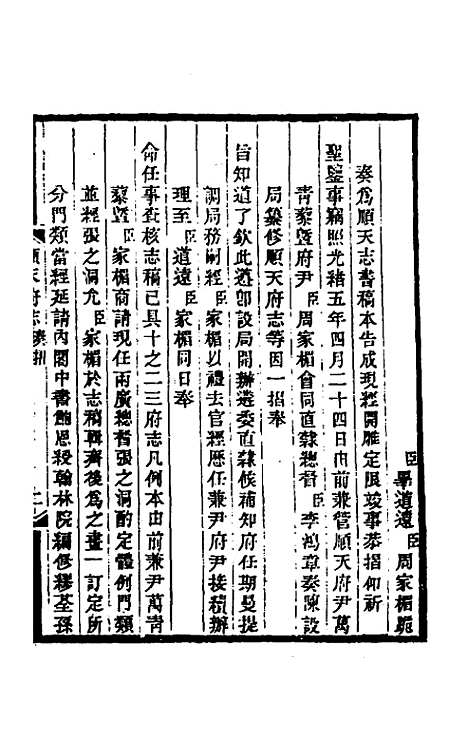 臣畢道遠臣周家楣跪
奏爲順天志書稿本告成現經開雕定限竣事恭摺仰祈
聖鑒事竊照光緒五年四月二十四日由前兼管順天府尹萬
青藜暨府尹臣周家楣會同直隸總督臣李鴻章奏陳設
局纂修順天府志等因一摺奉
旨知道了欽此遵卽設局開辦遴委直隸候補知府任期曼提
調局務嗣經臣家楣以禮去官經歷任兼尹府尹接積辦
理至臣道遠臣家楣同日奉
命任事查核志稿已具十之二三府志凡例本由前兼尹萬青
藜暨臣家楣商請現任兩廣總督張之洞酌定體例門類
並經張之洞允臣家楣於志稿輯齊後爲之畫一訂定所
分門類當經延請內閣中書鮑恩綬翰林院編修繆荃孫
順天府志